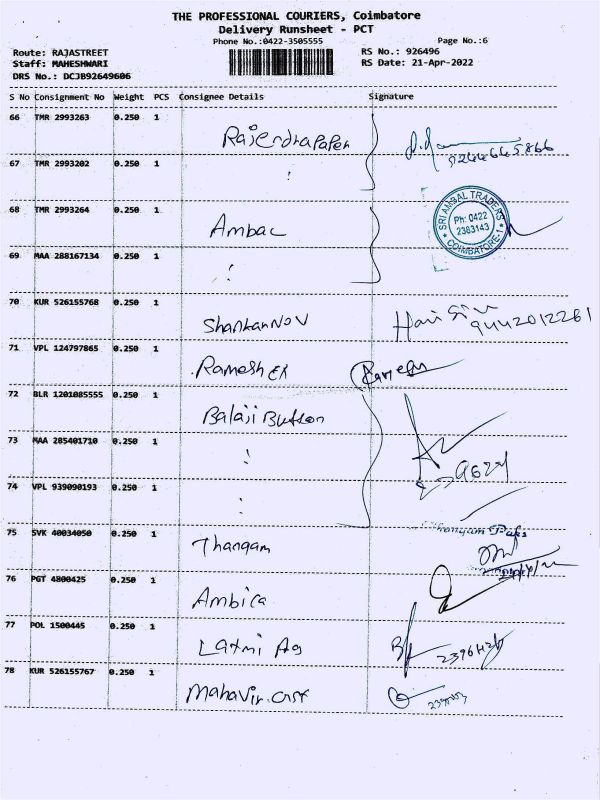 THE PROFESSIONAL COURIERS, Coimbatore
Delivery Runsheet - PCT
Phone No.:0422-3505555 Page No.:6
Route: RAJASTREET RS No.: 926496
Staff: MAHESHWARI RS Date: 21-Apr-2022
DRS No.: DCJB92649606
S No Consignment No Weight PCS Consignee Details Signature
66 TMR 2993263 0.250 1
Rajendra Paper
9244645866
67 TMR 2993202 0.250 1
68 TMR 2993264 0.250 1
Ambac
SRI AMBAL TRADERS
Ph: 0422
2383143
COIMBATORE-1
69 MAA 288167134 0.250 1
70 KUR 526155768 0.250 1
Shankar Nov Hari 9442012261
71 VPL 124797865 0.250 1
Ramesh Ex Ramesh
72 BLR 1201085555 0.250 1
Balaji Button
73 MAA 285401710 0.250 1
74 VPL 939090193 0.250 1
75 SVK 40034050 0.250 1
Thangam
76 PGT 4800425 0.250 1
Ambica
77 POL 1500445 0.250 1
Laxmi Ag
78 KUR 526155767 0.250 1
Mahavir